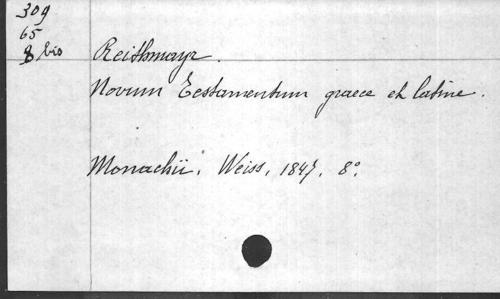 309
65
8 bis
Reithmayr.
Novum Testamentum graece et latine.
Monachii, Weiss, 1847. 8°.